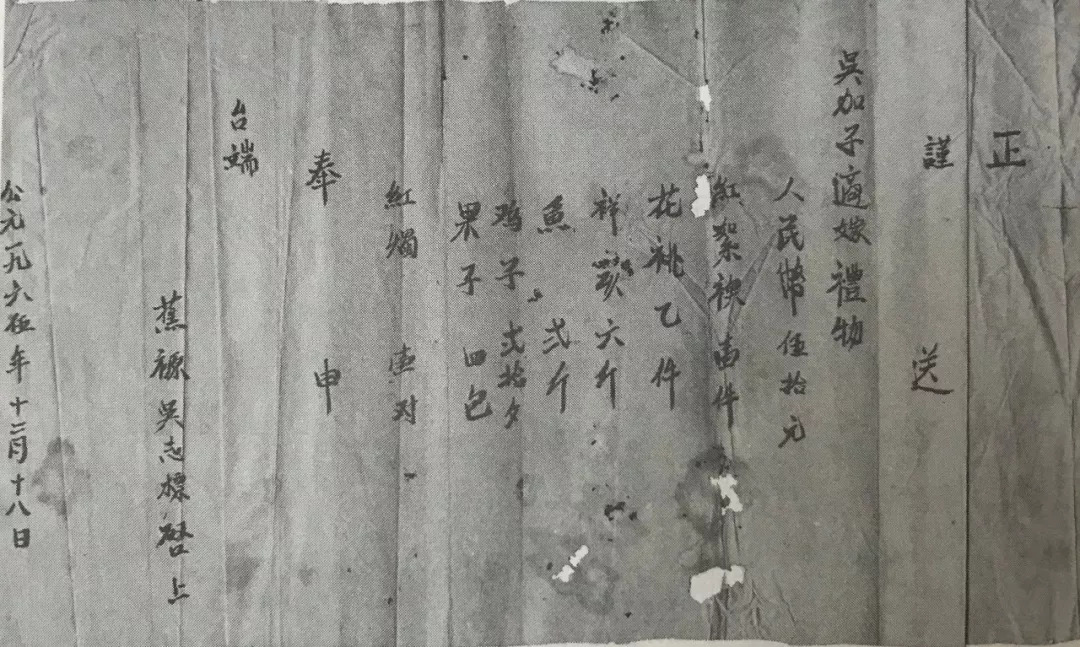 正
謹送
吳加子適嫁禮物
人民幣伍拾元
紅絮襖壹件
花袄乙件
祥 六斤
魚 弍斤
鸡子 弍拾夕
果子 四包
紅燭 壹对
奉申
台端
蕉 吳志標啓上
公元一九六伍年十二月十八日